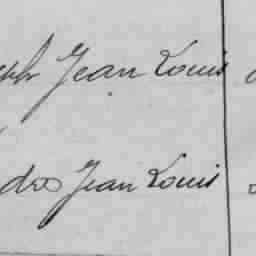 eph Jean Louis
dro Jean Louis